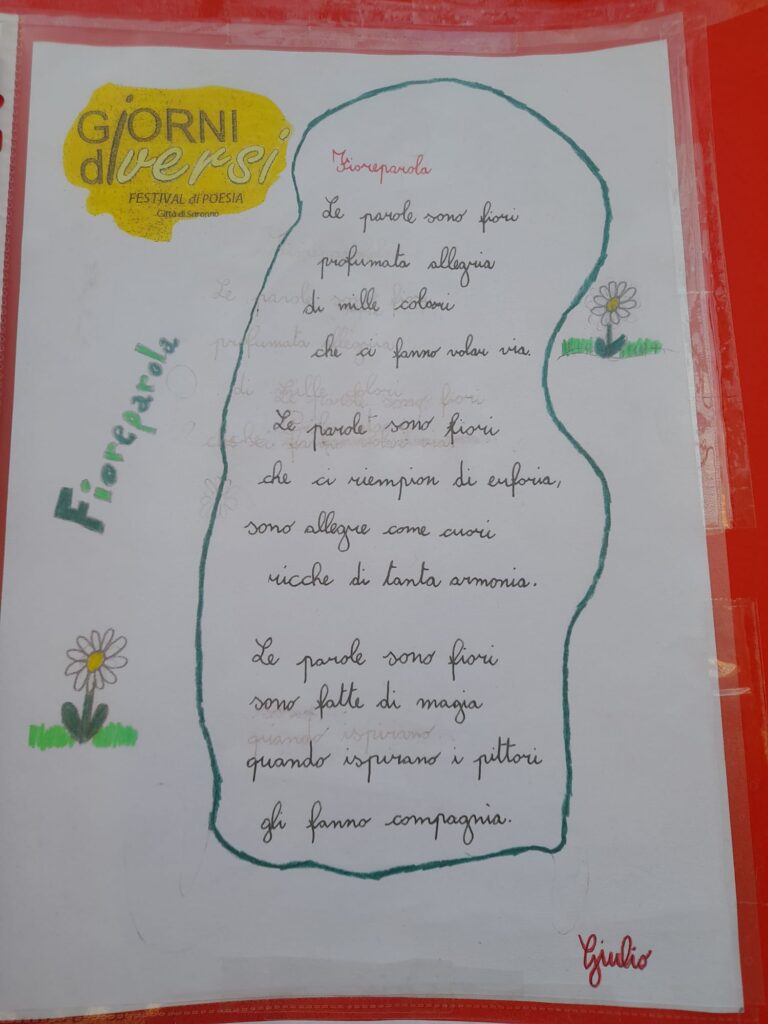 GiORNI
diversi
FESTIVAL di POESIA
Città di Saronno
Fioreparola
Fioreparola
Le parole sono fiori
profumata allegria
di mille colori
che ci fanno volar via.
Le parole sono fiori
che ci riempion di euforia,
sono allegre come cuori
ricche di tanta armonia.
Le parole sono fiori
sono fatte di magia
quando ispirano i pittori
gli fanno compagnia.
Giulio